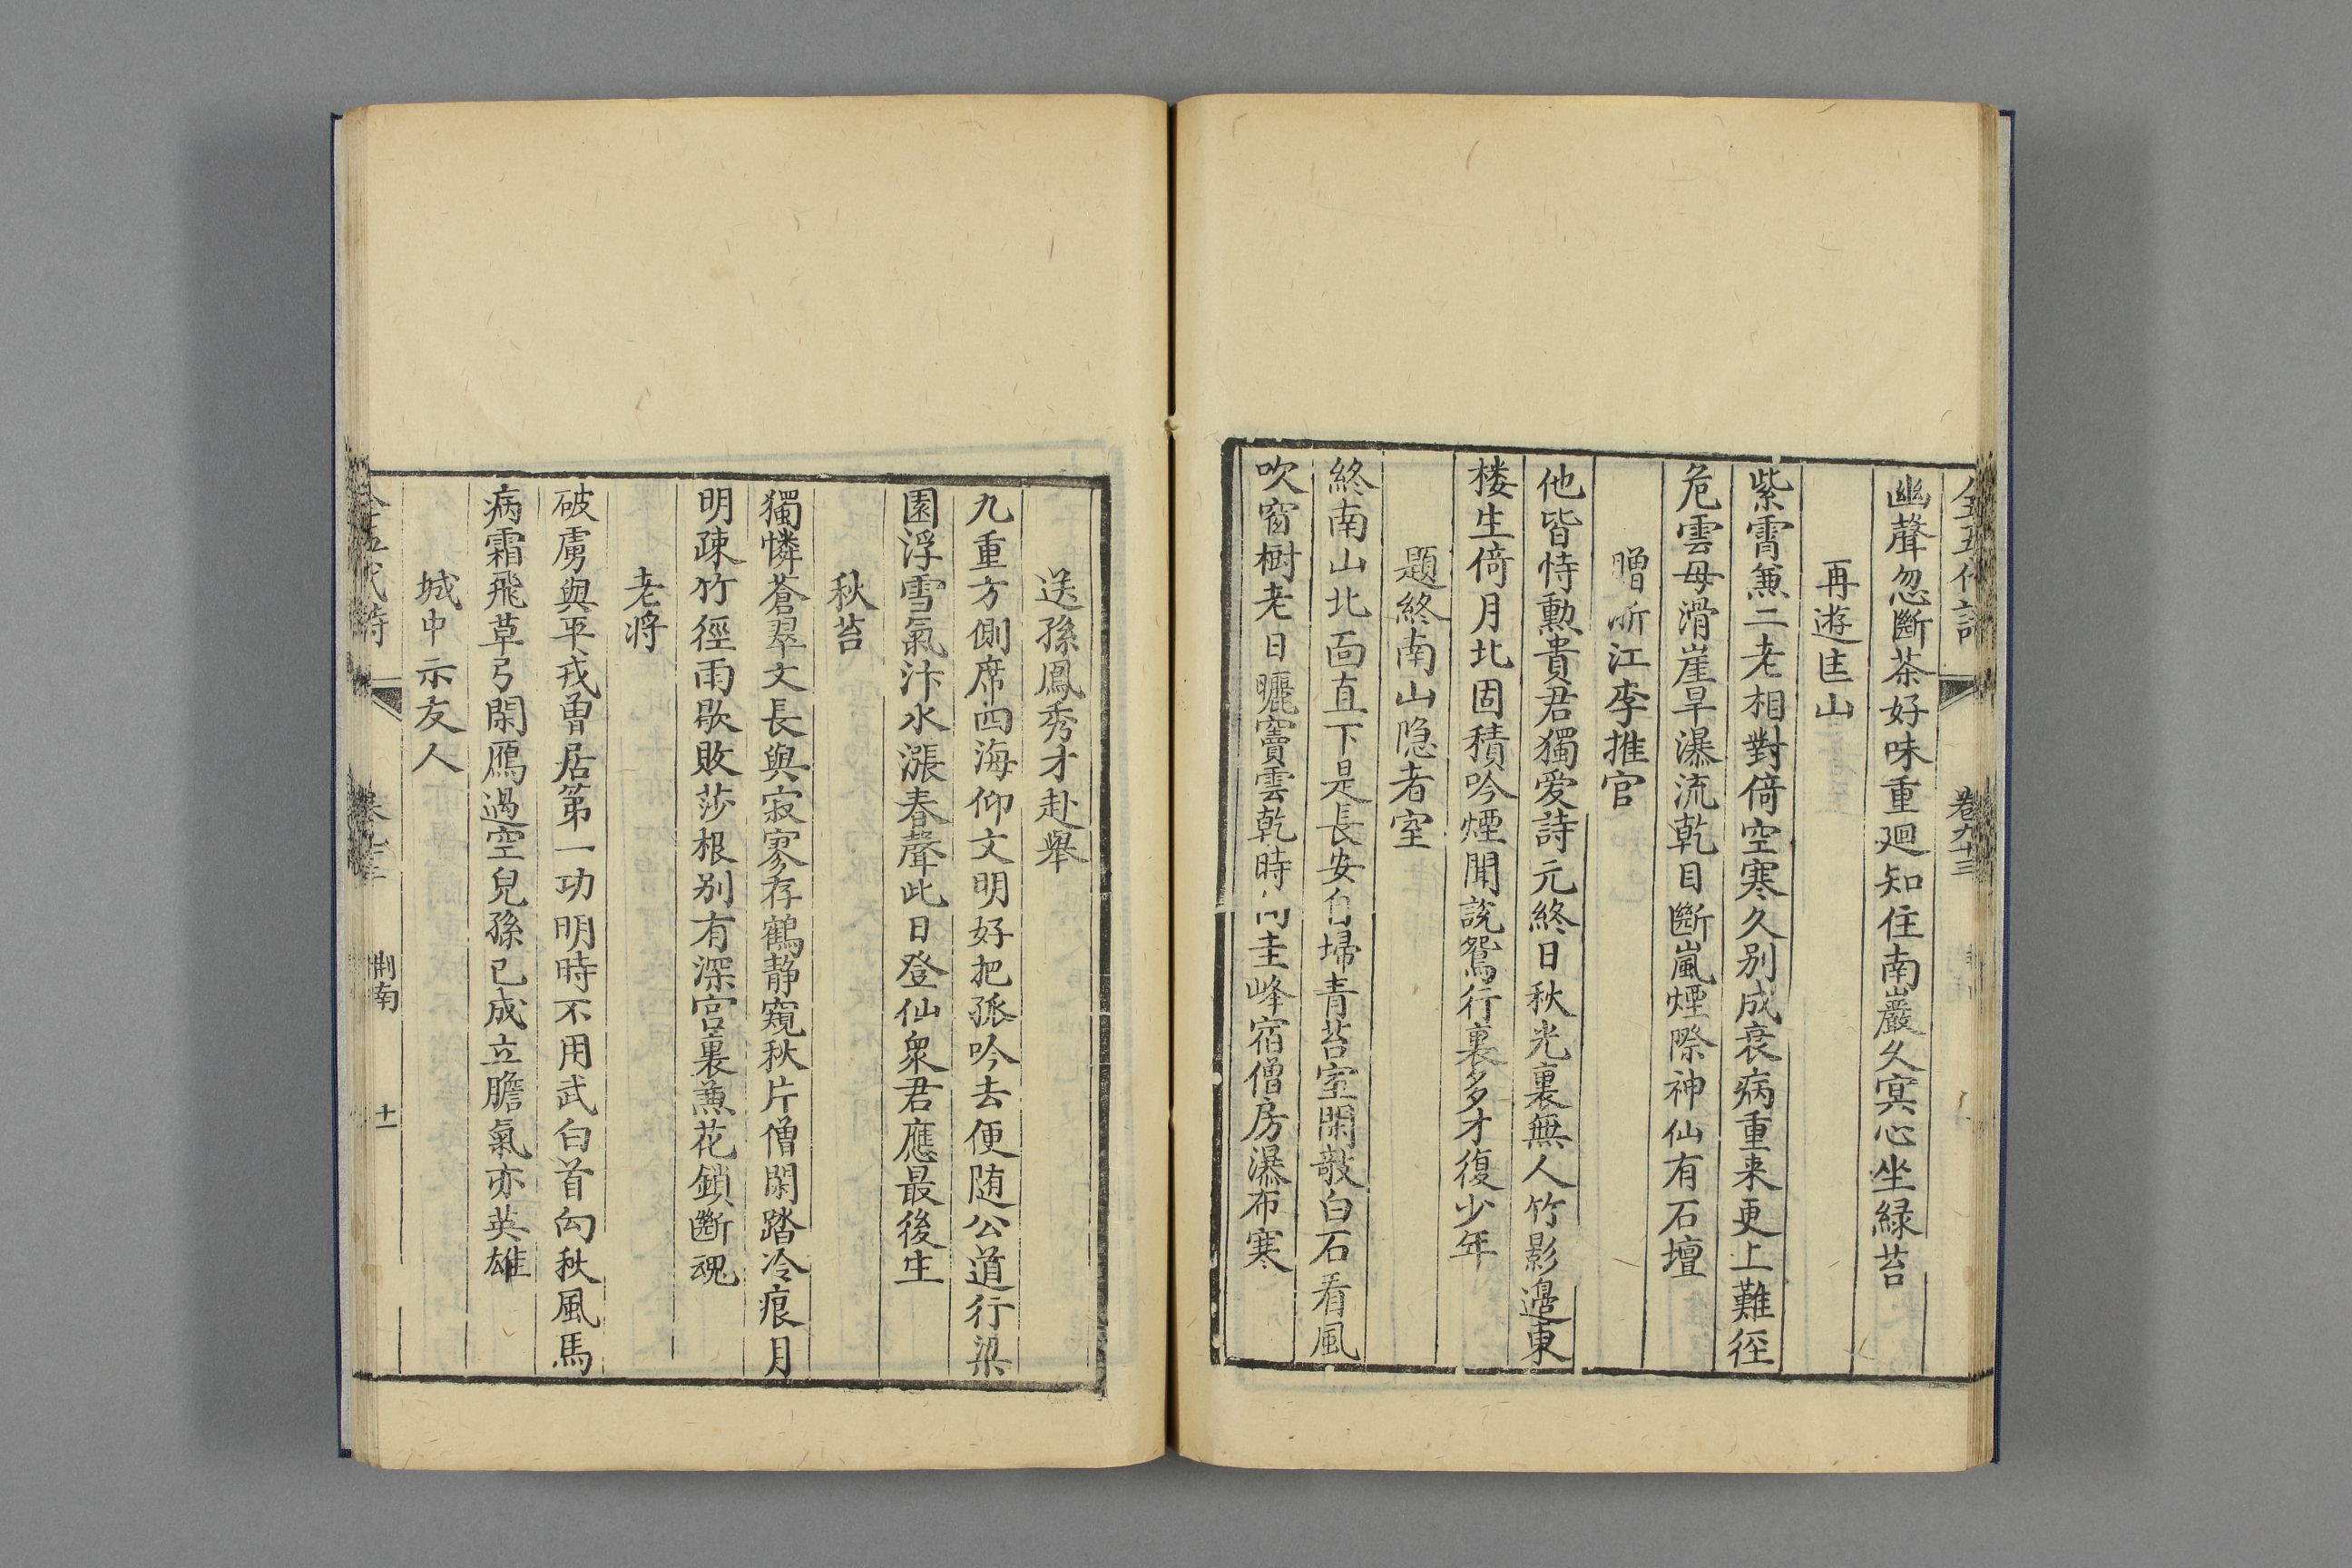 幽聲忽斷茶好味重廻知住南巖久冥心坐緑苔
再遊匡山
紫霄兼二老相對倚空寒久别成衰病重来更上難徑
危雲母滑崖旱瀑流乾目斷嵐煙際神仙有石壇
贈浙江李推官
他皆恃勳貴君獨爱詩元終日秋光裏無人竹影邉東
楼生倚月北固積吟煙聞說鴛行裏多才復少年
題終南山隐者室
終南山北面直下是長安自埽青苔室閑敲白石看風
吹窗樹老日曬竇雲乾時向圭峰宿僧房瀑布寒
卷九十三
送孫鳳秀才赴舉
九重方側席四海仰文明好把孤吟去便随公道行梁
園浮雪氣汴水漲春聲此日登仙衆君應最後生
秋苔
獨憐蒼翠文長與寂寥存鶴静窺秋片僧閑踏冷痕月
明疎竹徑雨歇敗莎根别有深宫裏兼花鎖斷魂
老将
破虜與平戎曽居第一功明時不用武白首向秋風馬
病霜飛草弓閑鴈過空兒孫已成立膽氣亦英雄
城中示友人
荆南
十一